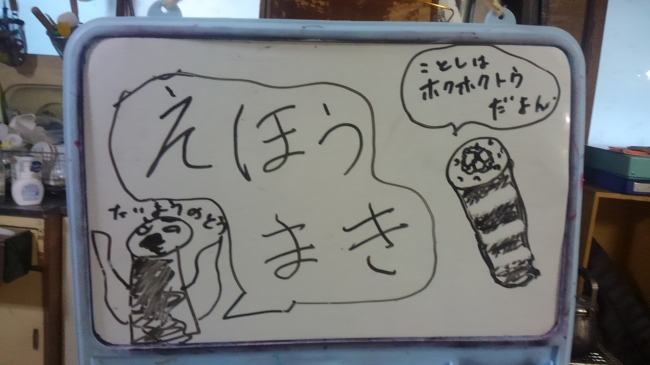 ことしは
ホクホクトウ
だよん
えほう
まき
たいようのとう